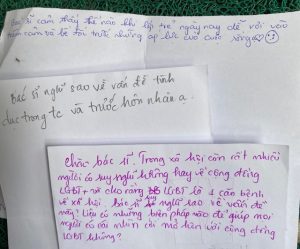 Bác sĩ cảm thấy thế nào khi lớp trẻ ngày nay dễ rơi vào
trầm cảm và bế tắc trước những áp lực của cuộc sống ạ?
Bác sĩ nghĩ sao về vấn đề tình
dục trong tc và trước hôn nhân ạ.
Chào bác sĩ. Trong xã hội còn rất nhiều
người có suy nghĩ không hay về cộng đồng
LGBT+ và cho rằng LGBT là 1 căn bệnh
về xã hội. Bác sĩ nghĩ sao về vấn đề
này? Liệu có những biện pháp nào để giúp mọi
người có cái nhìn cởi mở hơn với cộng đồng
LGBT không?